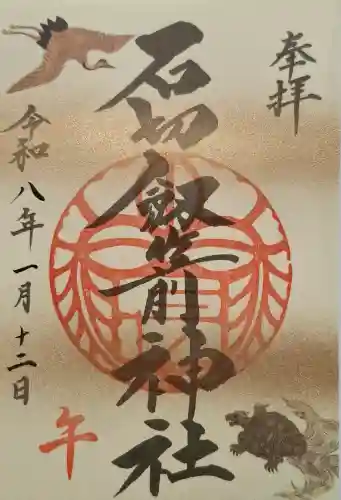 奉拝
石切劔箭神社
令和八年一月十二日
午